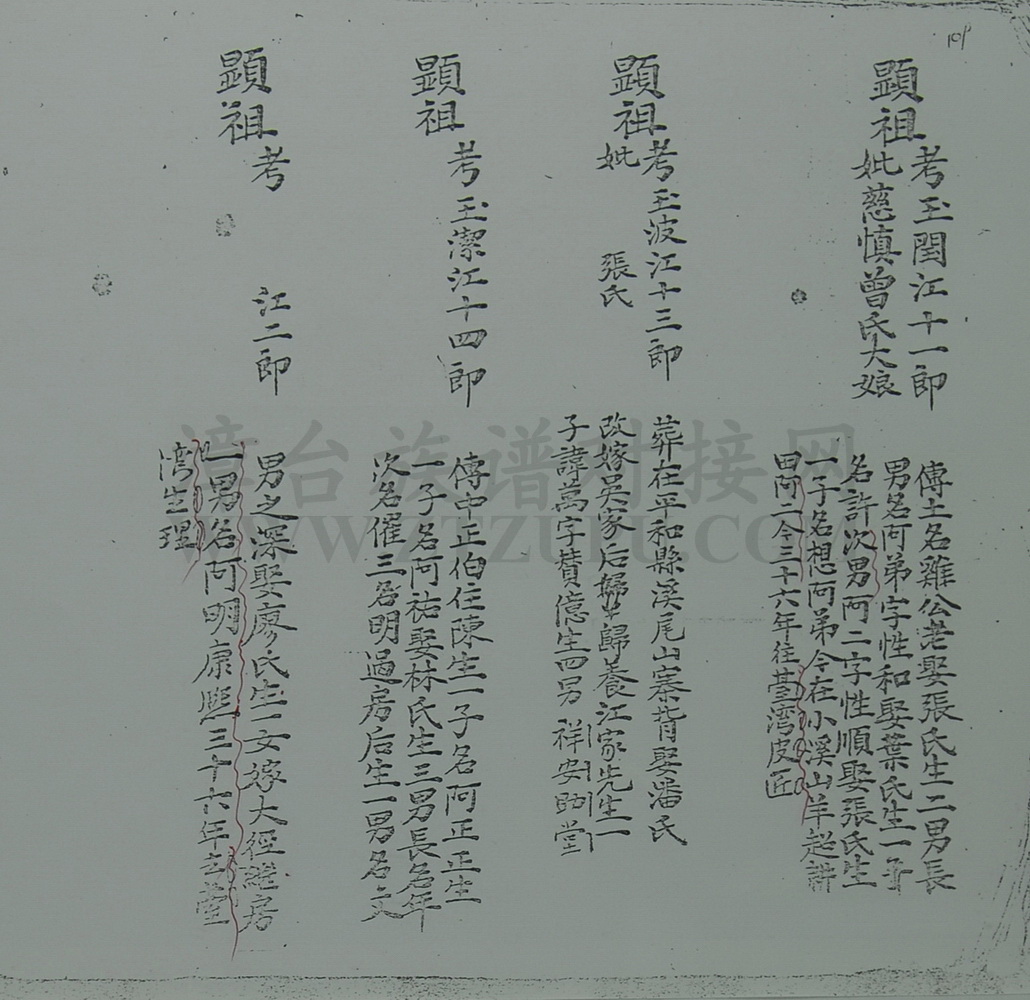 101
顯祖
考玉閏江十一郎
妣慈慎曾氏大娘
傳土名雞公老娶張氏生二男長
男名阿弟字性和娶葉氏生一子
名許次男阿二字性順娶張氏生
一子名想阿弟今在小溪山羊起耕
田阿二今三十六年往臺湾皮匠
顯祖
考玉波江十三郎
妣 張氏
葬在平和縣溪尾山寨背娶潘氏
改嫁吳家后歸養江家先生一
子諱萬字賛億生四男祥安助堂
顯祖
考玉潔江十四郎
傳中正伯任陳生一子名阿正正生
一子名阿祐娶林氏生三男長名年
次名催三名明過房后生一男名文
顯祖
考 江二郎
男之深娶廖氏生一女嫁大徑継房
一男名阿明康熙三十六年去臺
湾生理
漳台族谱对接网
WWW.ZTZUPU.COM